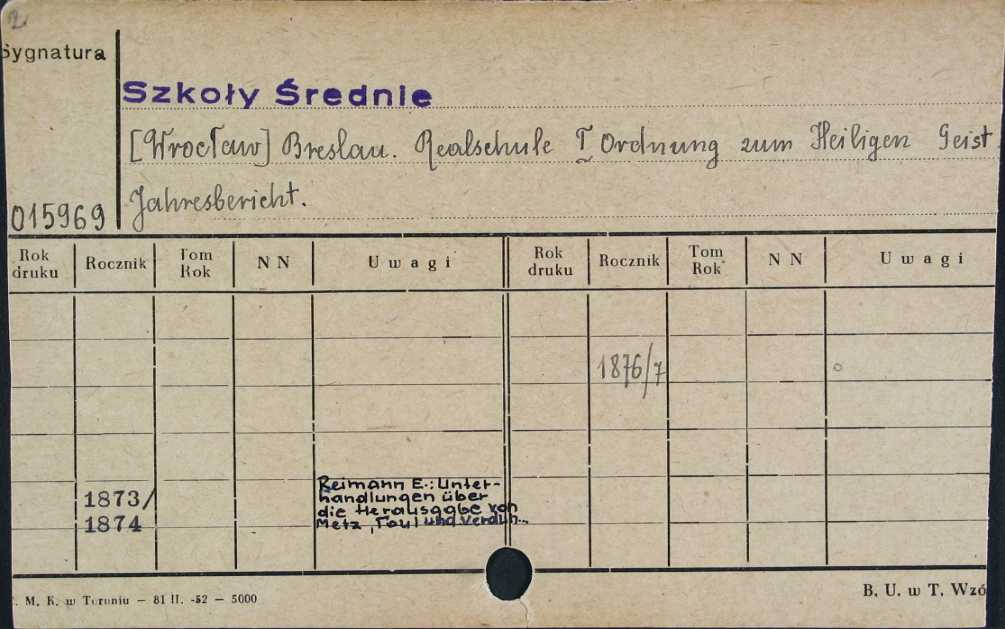 2.
Sygnatura
Szkoły Średnie
[Wrocław] Breslau. Realschule I Ordnung zum Heiligen Geist.
Jahresbericht.
015969
Rok druku Rocznik Tom Rok NN Uwagi Rok druku Rocznik Tom Rok NN Uwagi
1876/7
1873/
1874
Reimann E.: Unter-
handlungen über
die Herausgabe von
Metz, Toul und Verdun..
. M. K. w Toruniu — 81 II. -52 — 5000
B. U. w T. Wzó